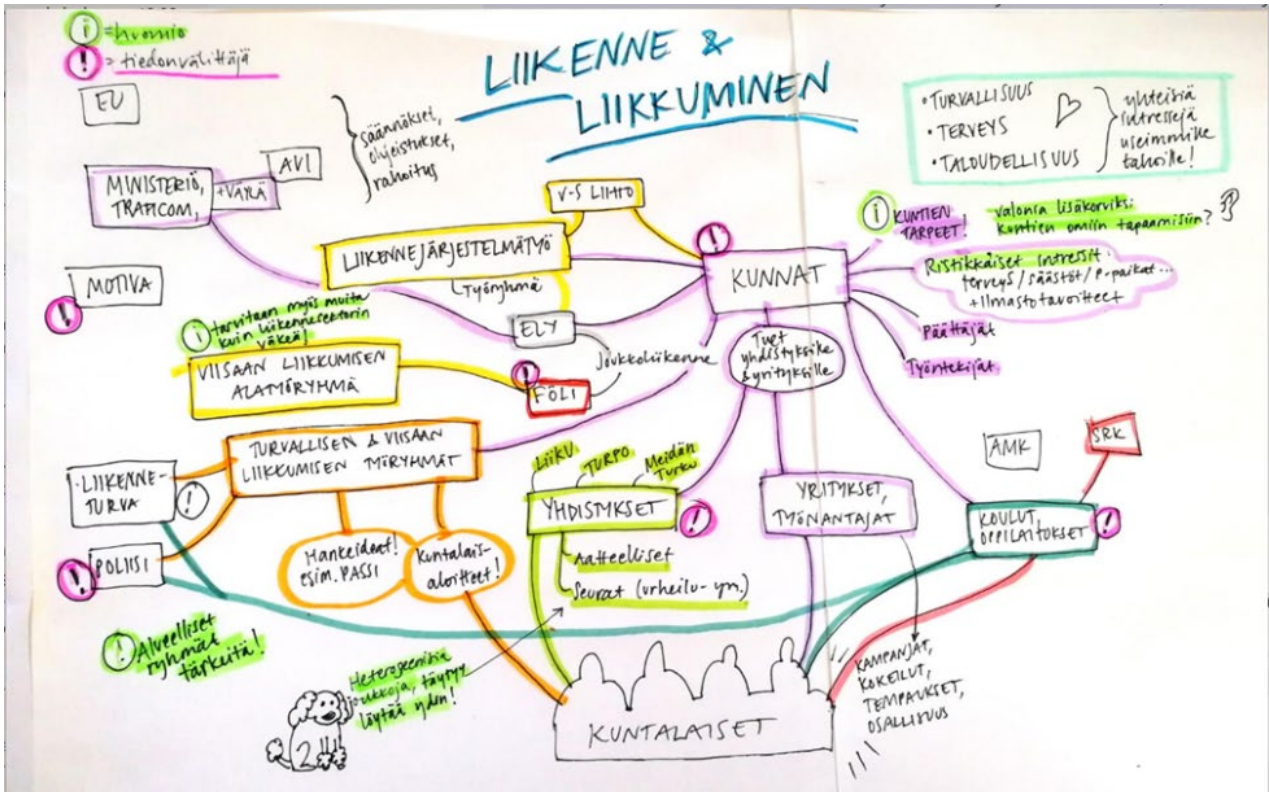 i = huomio
! = tiedonvälittäjä
LIIKENNE &
LIIKKUMINEN
EU
säännökset,
ohjeistukset,
rahoitus
AVI
MINISTERIÖ,
TRAFICOM,
+VÄYLÄ
• TURVALLISUUS
• TERVEYS
• TALOUDELLISUUS
yhteisiä
intressejä
useimmille
tahoille!
V-S LIITTO
LIIKENNEJÄRJESTELMÄTYÖ
Työryhmä
!
KUNNAT
i
KUNTIEN
TARPEET!
Valonia lisäkorviksi
kuntien omiin tapaamisiin?
Ristikkäiset intressit:
terveys/säästöt/P-paikat...
+Ilmastotavoitteet
Päättäjät
Työntekijät
MOTIVA
!
ELY
Joukkoliikenne
i
tarvitaan myös muita
kuin liikennesektorin
väkeä!
VIISAAN LIIKKUMISEN
ALATYÖRYHMÄ
!
FÖLI
Tuet
yhdistyksille
& yrityksille
TURVALLISEN & VIISAAN
LIIKKUMISEN TYÖRYHMÄT
LIIKENNE-
TURVA
!
POLIISI
!
Hankeideat!
esim. PASSI
Kuntalais-
aloitteet!
LiiKU
TURPO
Meidän
Turku
YHDISTYKSET
!
Aatteelliset
Seurat (urheilu- ym.)
YRITYKSET,
TYÖNANTAJAT
AMK
SRK
KOULUT,
OPPILAITOKSET
!
! Alueelliset
ryhmät
tärkeitä!
Heterogeenisiä
joukkoja, täytyy
löytää yden!
2
KUNTALAISET
KAMPANJAT,
KOKEILUT,
TEMPAUKSET,
OSALLISUUS